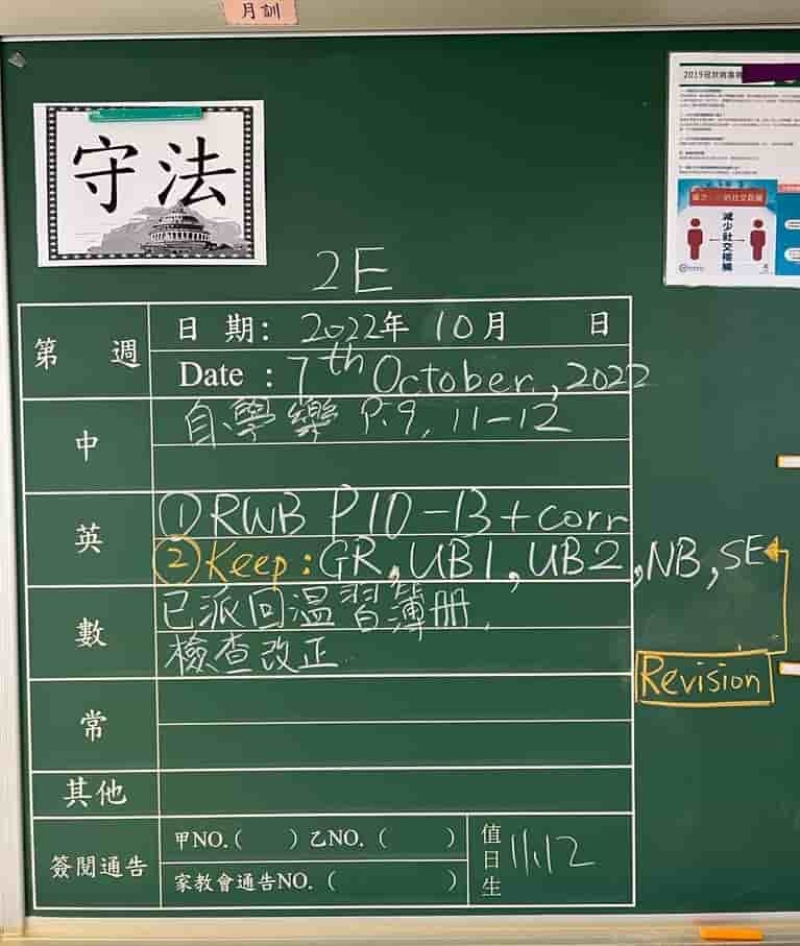 月訓
守法
2019冠狀病毒
減少社交接觸
2E
第 週
日 期: 2022年 10月 日
Date : 7th October, 2022
中
自學樂 P.9, 11-12
英
①RWB P10-13+corr
②Keep:GR, UB1, UB2, NB, SE
Revision
數
已派回溫習簿冊,
檢查改正
常
其他
簽閱通告
甲NO.( ) 乙NO. ( )
家教會通告NO. ( )
值日生
11,12